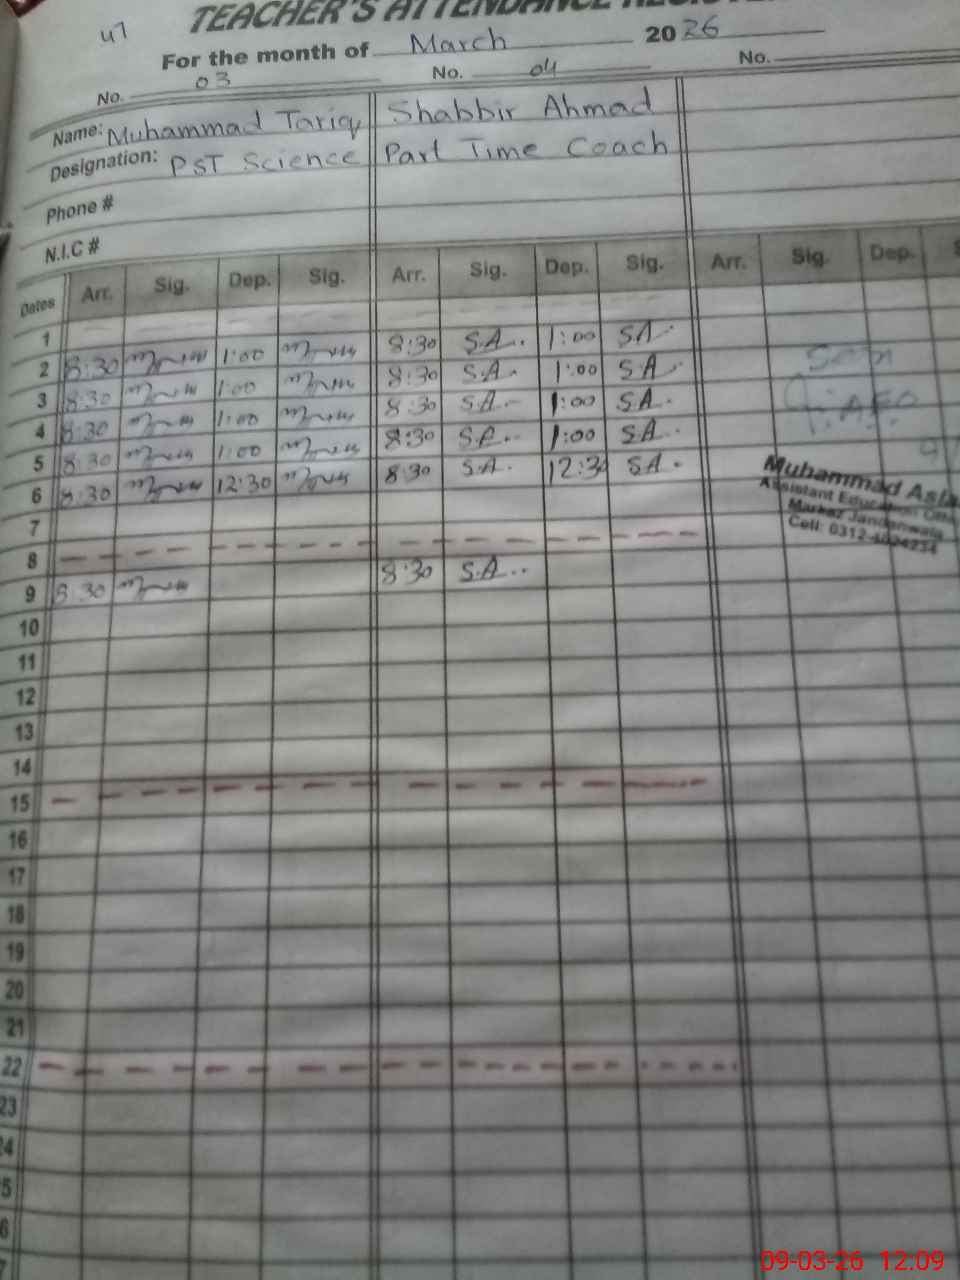 47
TEACHER'S ATTENDANCE
For the month of March 2026
No. 03 No. 04 No.
Name: Muhammad Tariq Shabbir Ahmad
Designation: PST Science Part Time Coach
Phone #
N.I.C #
Dates Arr. Sig. Dep. Sig. Arr. Sig. Dep. Sig. Arr. Sig. Dep.
1
2 8:30 1:00 8:30 S.A. 1:00 S.A.
3 8:30 1:00 8:30 S.A. 1:00 S.A.
4 8:30 1:00 8:30 S.A. 1:00 S.A.
5 8:30 1:00 8:30 S.A. 1:00 S.A.
6 8:30 12:30 8:30 S.A. 12:30 S.A.
7
8
9 8:30 8:30 S.A.
10
11
12
13
14
15
16
17
18
19
20
21
22
23
Seen
Muhammad
Assistant Education
Markaz
Cell: 0312-
09-03-26 12.09